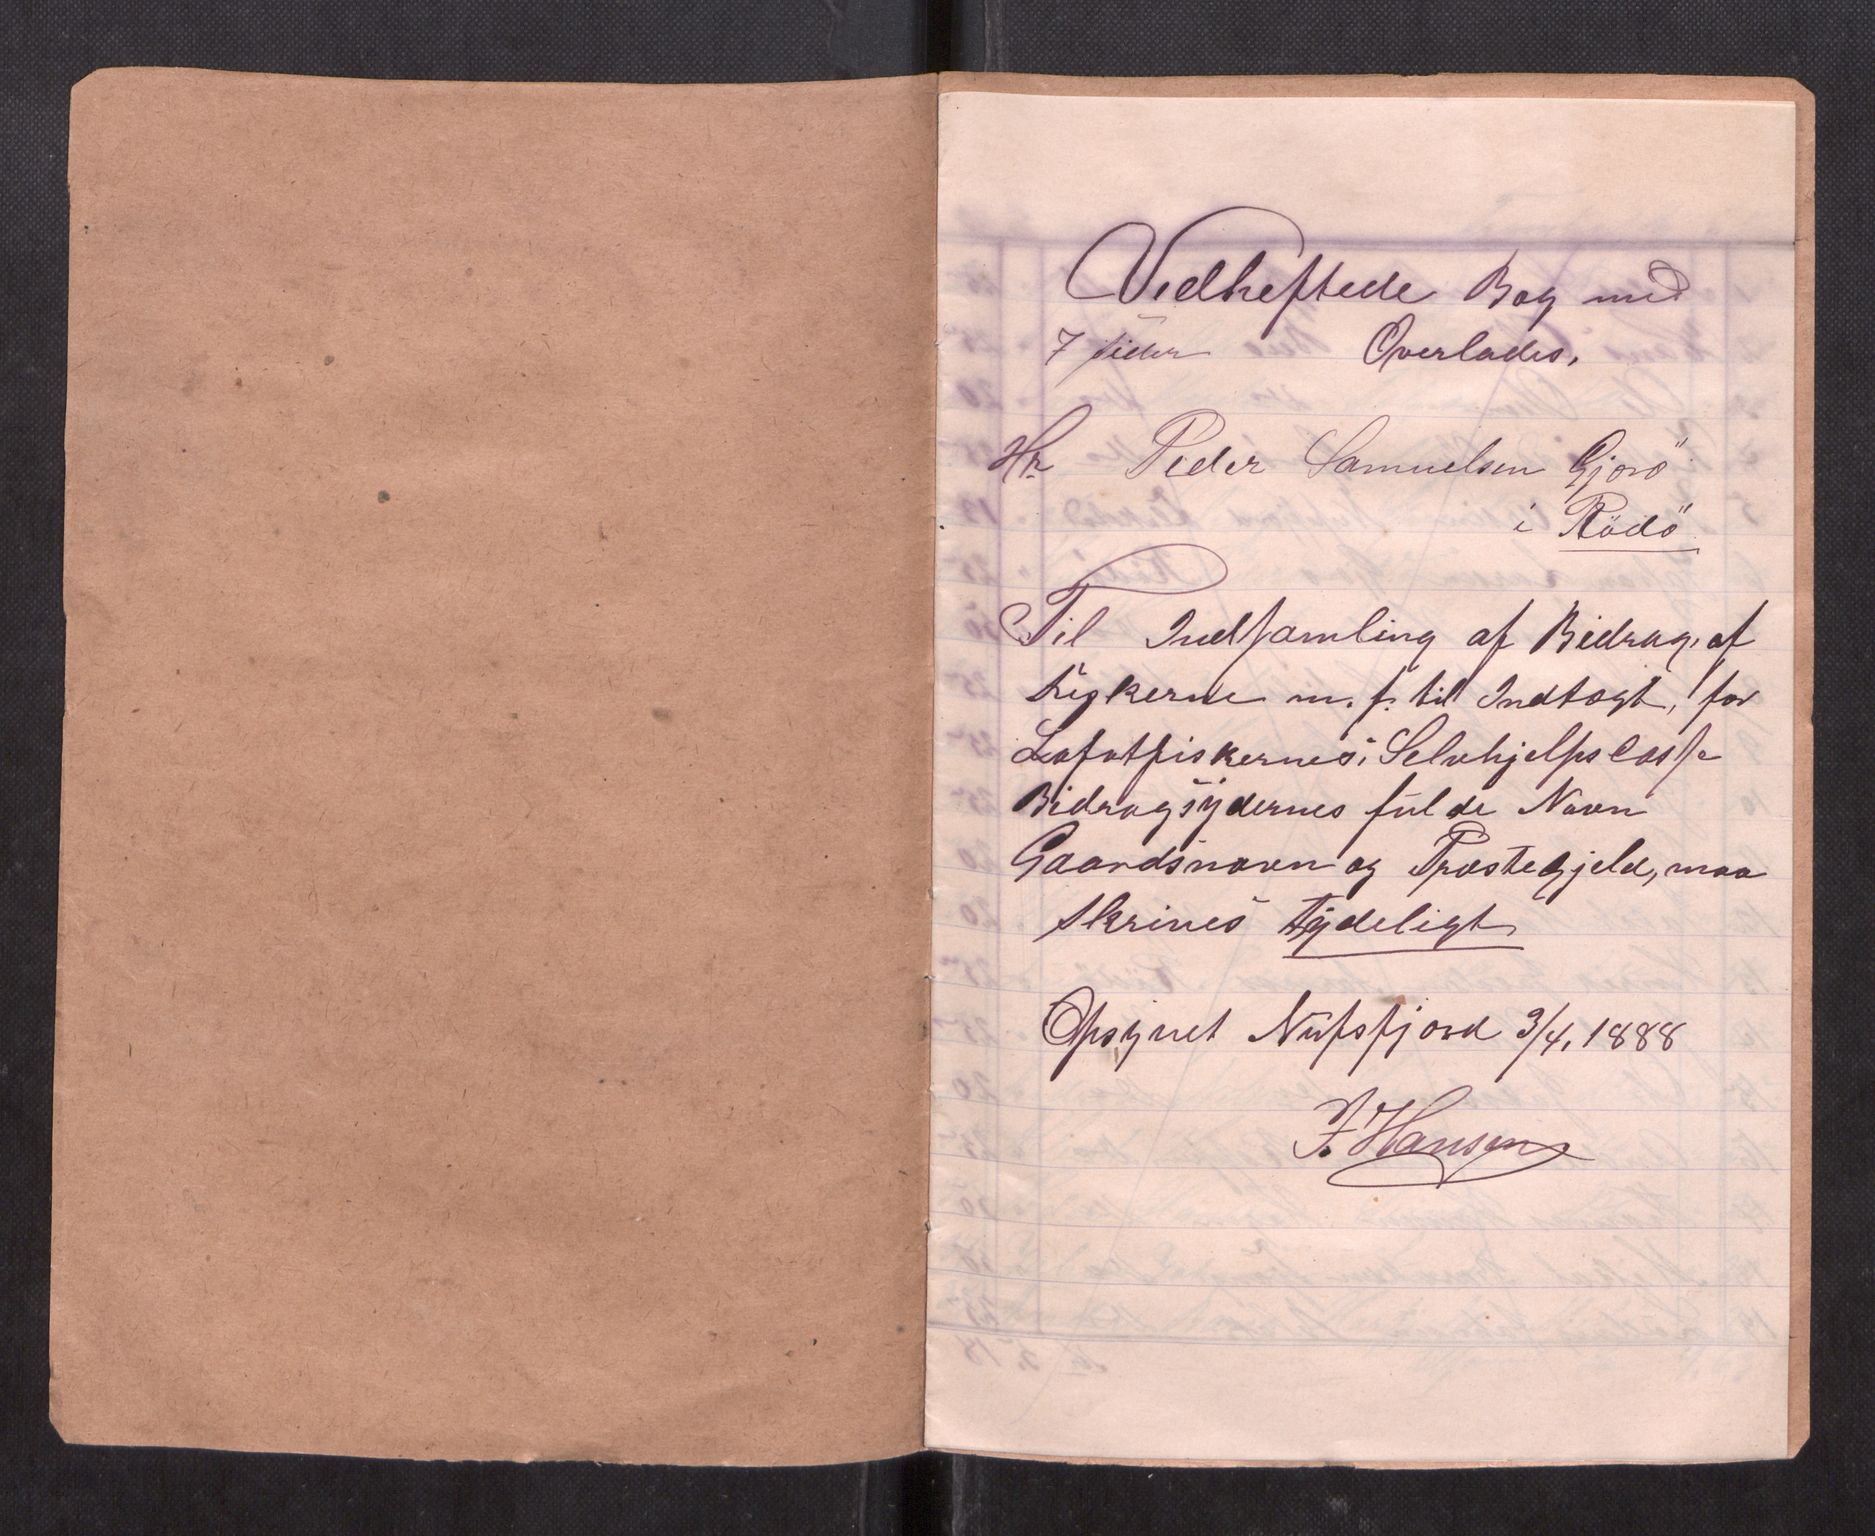 Vedheftede Bog med
7 sider Overlades,
Hr Peder Samuelsen Gjorö
i Rödö
Til Indsamling af Bidrag, af
fiskerne m. f. til Indtægt, for
Lofotfiskernes, Selvhjelpscasse
Bidragsydernes fulde Navn
Gaardsnavn og Præstegjeld, maa
skrives tydeligt
Opsynet Nufsfjord 3/4, 1888
J. Hansen